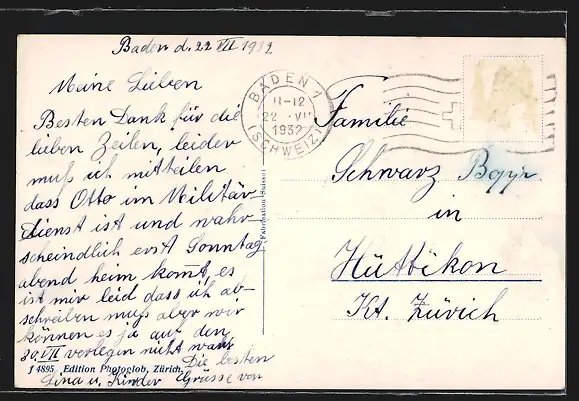 Baden d. 22 VII 1932
Meine Lieben
Besten Dank für die
lieben Zeilen, leider
muß ich mitteilen
dass Otto im Militär-
dienst ist und wahr-
scheindlich erst Sonntag
abend heim komt, es
ist mir leid dass ich ab-
schreiben muß aber wir
können es ja auf den
30. VII verlegen nicht wahr
Die besten
Grüsse von
Lina u. Kinder
f 4895 Edition Photoglob, Zürich.
Fabrication (Suisse)
BADEN 1
11-12
22. VII
1932
(SCHWEIZ)
Familie
Schwarz Bopp
in
Hüttikon
Kt. Zürich